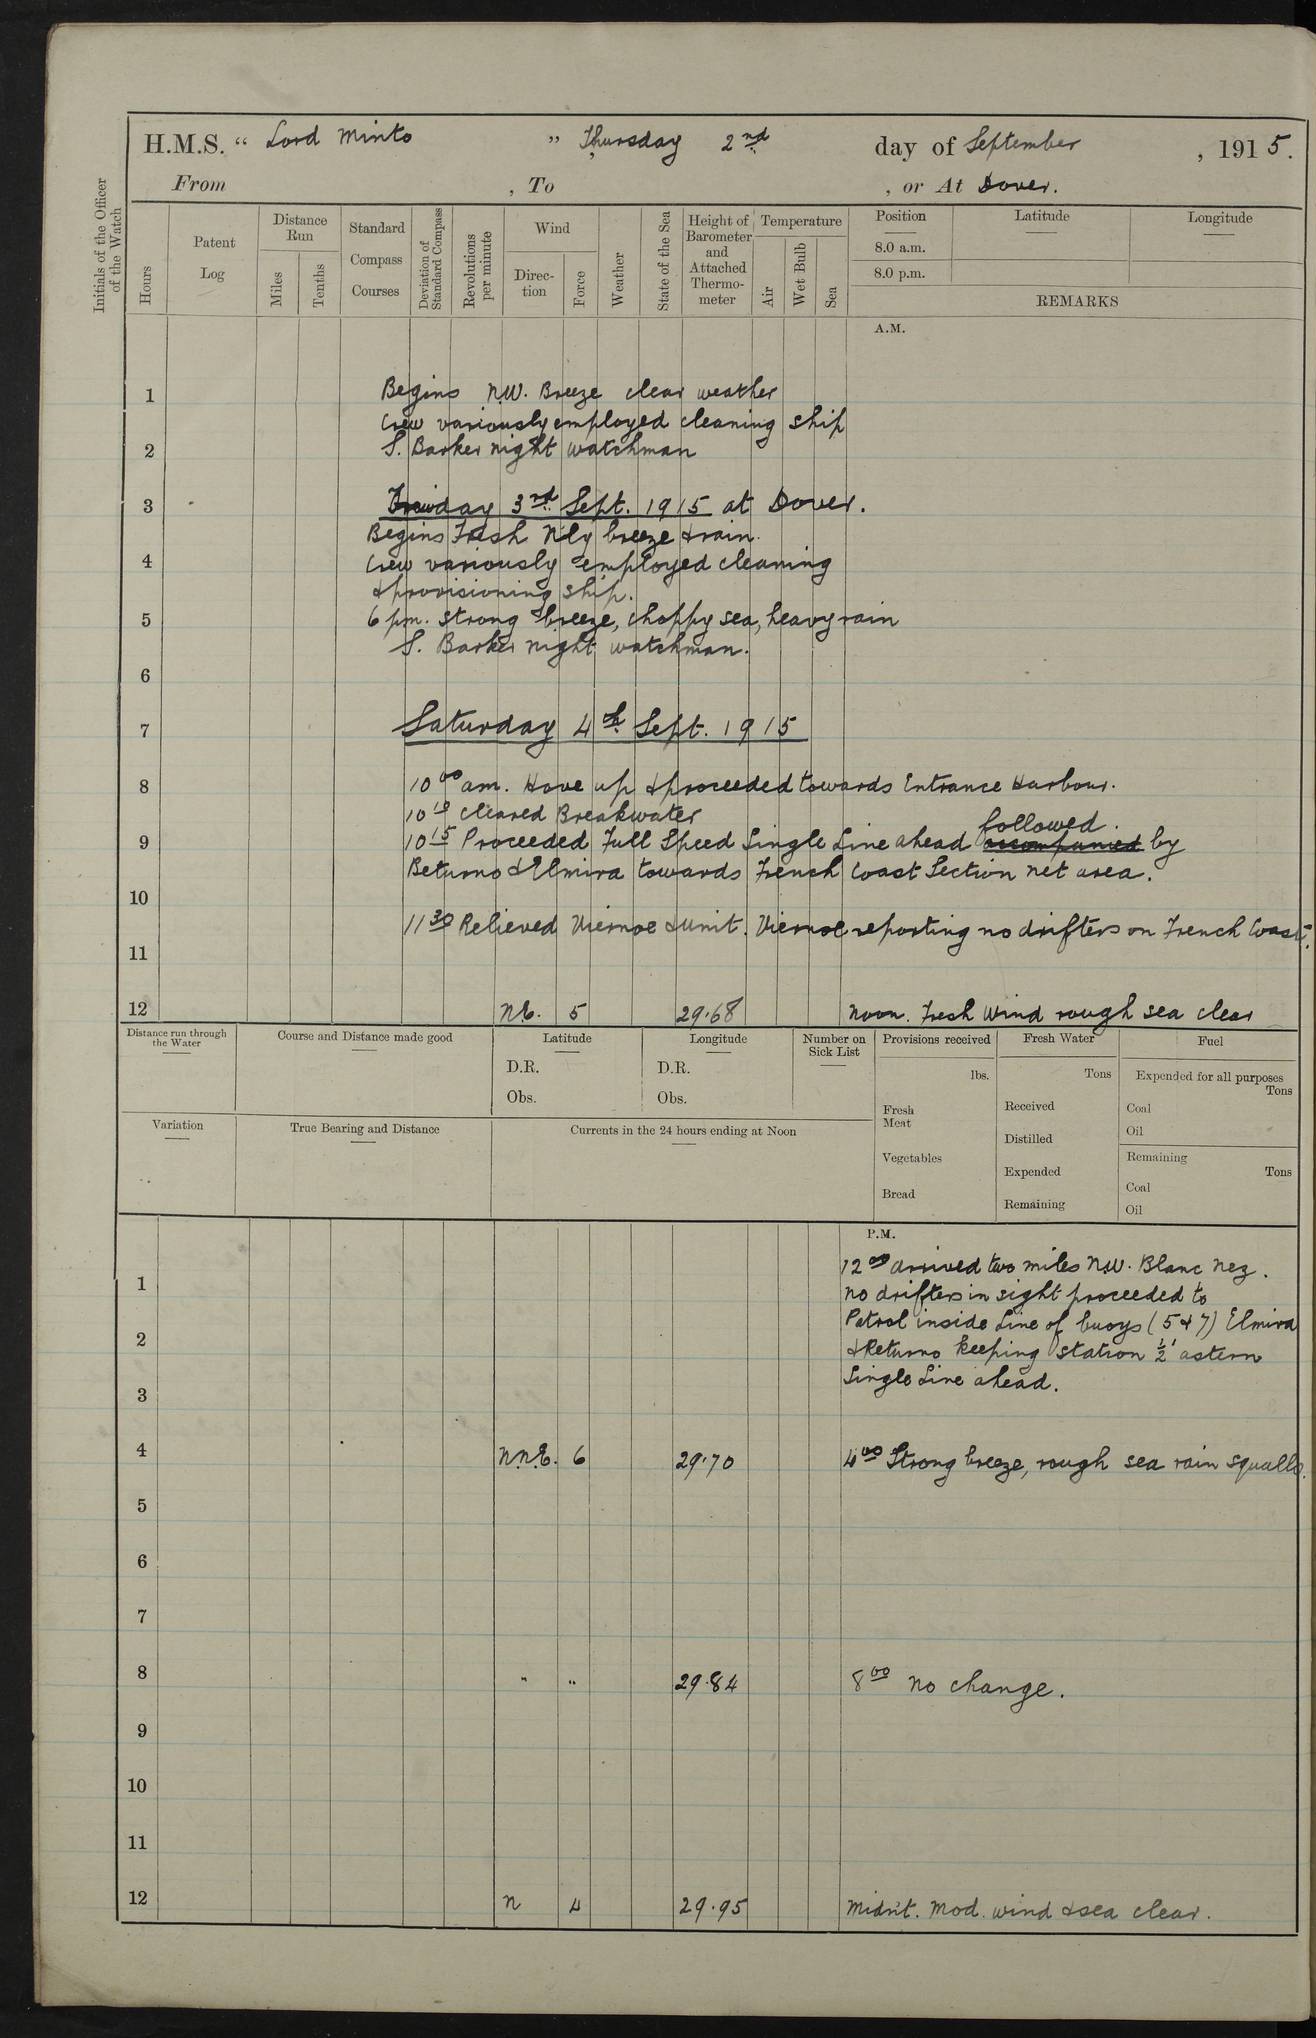 H.M.S. " Lord Minto " Thursday 2nd day of September , 1915.
From , To , or At Dover.
Initials of the Officer of the Watch
Hours
Patent Log
Distance Run
Miles
Tenths
Standard Compass Courses
Deviation of Standard Compass
Revolutions per minute
Wind
Direc-tion
Force
Weather
State of the Sea
Height of Barometer and Attached Thermo-meter
Temperature
Air
Wet Bulb
Sea
Position
8.0 a.m.
8.0 p.m.
Latitude
Longitude
REMARKS
A.M.
1 Begins N.W. Breeze clear weather
Crew variously employed cleaning ship
2 S. Barker night watchman
3 day 3rd Sept. 1915 at Dover.
Begins Fresh N'ly breeze & rain.
4 Crew variously employed cleaning
& provisioning ship.
5 6 pm. Strong breeze, choppy sea, heavy rain
S. Barker night watchman.
6
7 Saturday 4th Sept. 1915
8 10 00 am. Hove up & proceeded towards Entrance Harbour.
10 10 Cleared Breakwater
followed
9 10 15 Proceeded Full Speed Single Line ahead accompanied by
Returno & Elmira towards French Coast Section net area.
10
11 30 Relieved Viernoe & Unit. Viernoe reporting no drifters on French Coast.
11
12 N.E. 5 29.68 Noon. Fresh Wind rough sea clear
Distance run through the Water
Course and Distance made good
Latitude
D.R.
Obs.
Longitude
D.R.
Obs.
Number on Sick List
Provisions received
lbs.
Fresh Meat
Vegetables
Bread
Fresh Water
Tons
Received
Distilled
Expended
Remaining
Fuel
Expended for all purposes
Tons
Coal
Oil
Remaining
Tons
Coal
Oil
Variation
True Bearing and Distance
Currents in the 24 hours ending at Noon
P.M.
12 00 arrived two miles N.W. Blanc Nez.
1 No drifters in sight proceeded to
Patrol inside Line of buoys (5 & 7) Elmira
2 & Returno keeping station ½' astern
Single Line ahead.
3
4 N.N.E. 6 29.70 4 00 Strong breeze, rough sea rain squalls.
5
6
7
8 " " 29.84 8 00 No change.
9
10
11
12 N 4 29.95 Midn't. Mod. wind & sea clear.